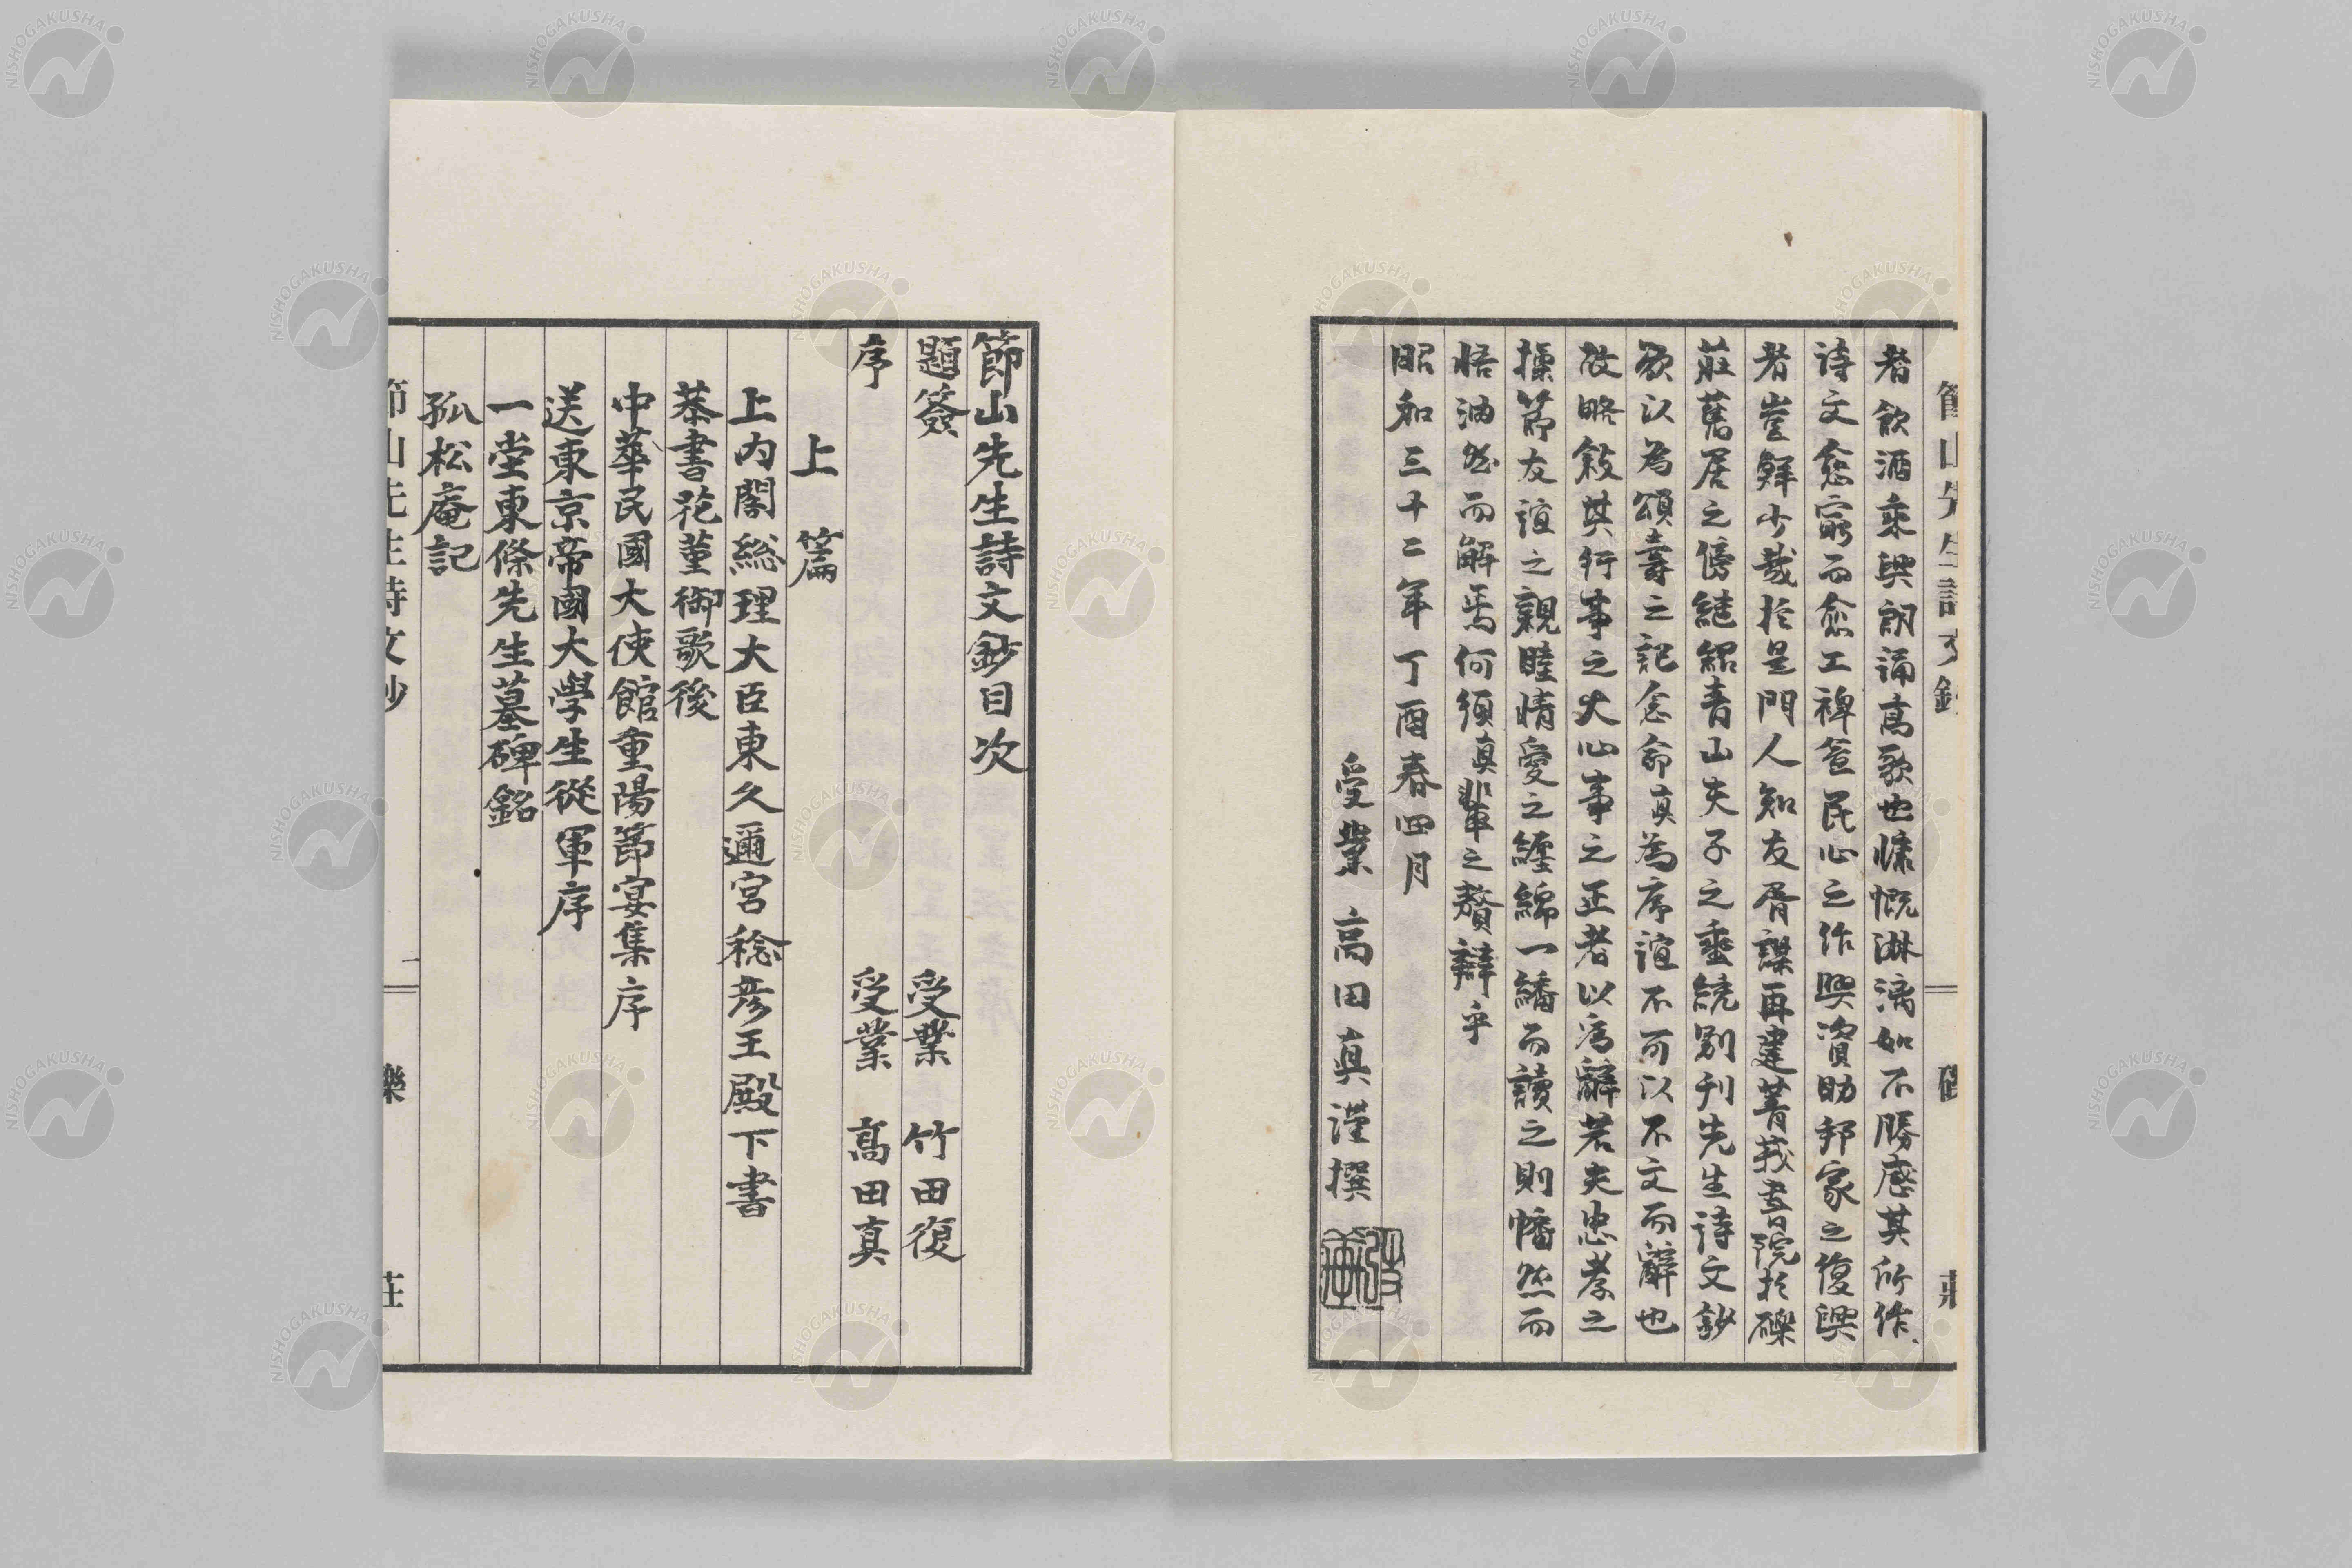 者飲酒乘興朗誦高歌也慷慨淋漓如不勝感其所作
詩文愈窮而愈工裨益民心之作興資助邦家之復興
者豈鮮少哉於是門人知友胥謀再建菁莪書院於礫
莊舊居之傍繼紹青山夫子之垂統別刊先生詩文鈔
欲以為頌壽之記念命真為序誼不可以不文而辭也
故略敍其行事之大心事之正者以為辭若夫忠孝之
操節友誼之親睦情愛之纏綿一繙而讀之則幡然而
悟油然而解焉何須真輩之贅辯乎
昭和三十二年丁酉春四月
受業 高田真謹撰
節山先生詩文鈔目次
題簽 受業 竹田復
序 受業 高田真
上 篇
上内閣総理大臣東久邇宮稔彦王殿下書
恭書花菫御歌後
中華民國大使館重陽節宴集序
送東京帝國大學生從軍序
一堂東條先生墓碑銘
孤松庵記
節山先生詩文鈔 一 礫 莊
NISHOGAKUSHA